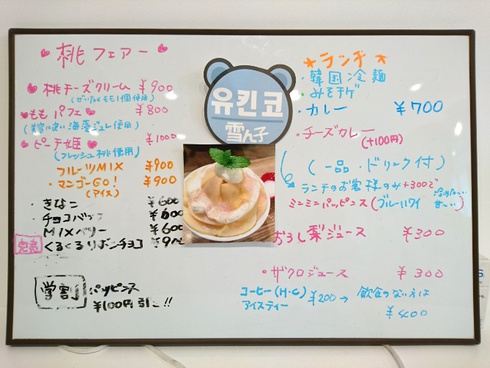 桃フェアー
・桃チーズクリーム ¥900
(ぜいたくもも1個使用)
ももパフェ ¥800
ピーチ姫 ¥1000
(フレッシュ桃使用)
フルーツMIX ¥900
・マンゴーGO! ¥900
(アイス)
・きなこ ¥600
・チョコバナナ ¥600
・MIXベリー ¥600
完売 くるくるリボンチョコ
学割 パッピンス
¥100円引こ!!
유킨코
雪ん子
*ランチ*
・韓国冷麺
・みそチゲ
・カレー ¥700
・チーズカレー (+100円)
(一品・ドリーク付)
ランチのお客様のみ+300で
ミニミニパッピンス(ブルーハワイ
おろし梨ジュース ¥300
・ザクロジュース ¥300
コーヒー(H・C) ¥200→ 飲食のない方は
アイスティー ¥400